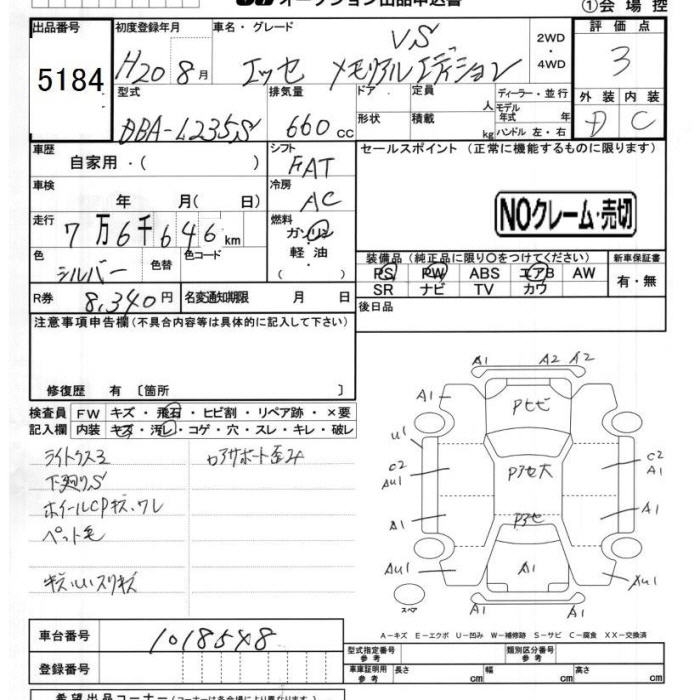 オークション出品申込書
①会場控
出品番号 初度登録年月 車名・グレード 評価点
5184 H20 8月 エッセ VS メモリアルエディション 2WD・4WD 3
型式 排気量 ドア 定員 人 ディーラー・並行 外装 内装
DBA-L235S 660 cc 形状 積載 kg モデル年式 年 ハンドル 左・右 D C
車歴 自家用・( ) シフト FAT
セールスポイント (正常に機能するものに限ります)
車検 年 月( 日) 冷房 AC
NOクレーム・売切
走行 7万6千646km 燃料 ガソリン・軽油
色 シルバー 色替 色コード
装備品 (純正品に限り○をつけてください) 新車保証書
PS PW ABS エアB AW 有・無
SR ナビ TV カワ
R券 8,340円 名変通知期限 月 日
後日品
注意事項申告欄(不具合内容等は具体的に記入して下さい)
修復歴 有 〔箇所 〕
検査員 FW キズ・飛石・ヒビ割・リペア跡・×要
記入欄 内装 キズ・汚レ・コゲ・穴・スレ・キレ・破レ
ライトクスミ
下廻りS
ホイールCPキズ、ワレ
ペット毛
A1 A2 A2
A1 Pヒビ
U1
C2 AU1 C2 A1
A1 A1
A1 XU1
スペア
A-キズ E-エクボ U-凹み W-補修跡 S-サビ C-腐食 XX-交換済
車台番号 1018548
登録番号
型式指定番号 参考 類別区分番号 参考
車庫証明用 参考 長さ cm 幅 cm 高さ cm
希望出品コーナー